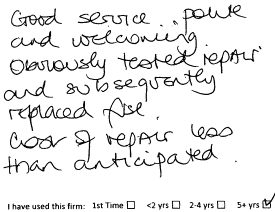 Good service.. polite
and welcoming.
Obviously tested repair
and subsequently
replaced fuse.
Cost of repair less
than anticipated.
I have used this firm: 1st Time ☐ <2 yrs ☐ 2-4 yrs ☐ 5+ yrs ☑